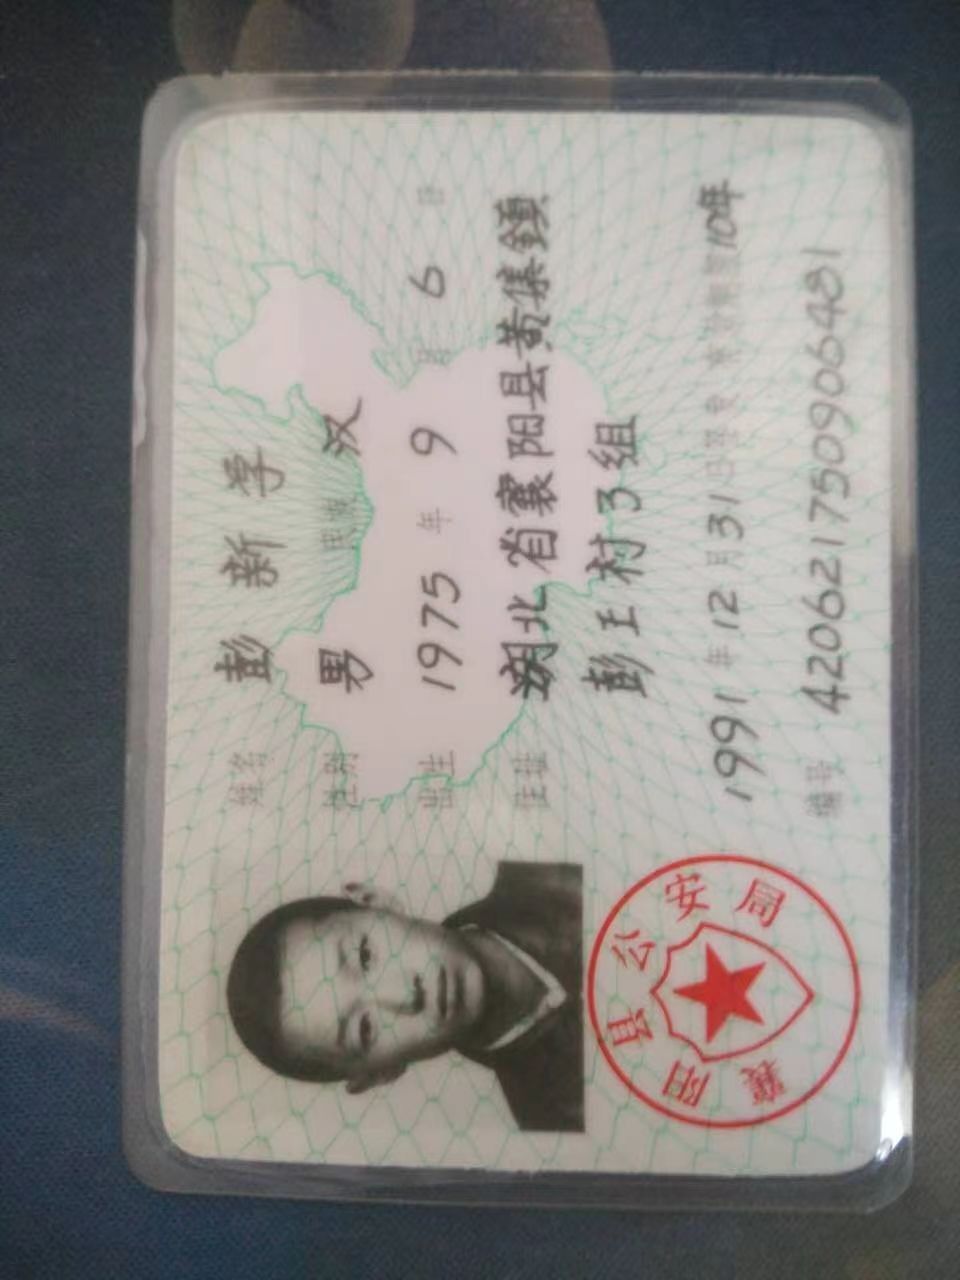 姓名 彭新学
性别 男 民族 汉
出生 1975年9月6日
住址 湖北省襄阳县黄集鎮
彭王村3组
1991年12月31日签发 有效期限10年
编号 420621750906481
襄阳县公安局